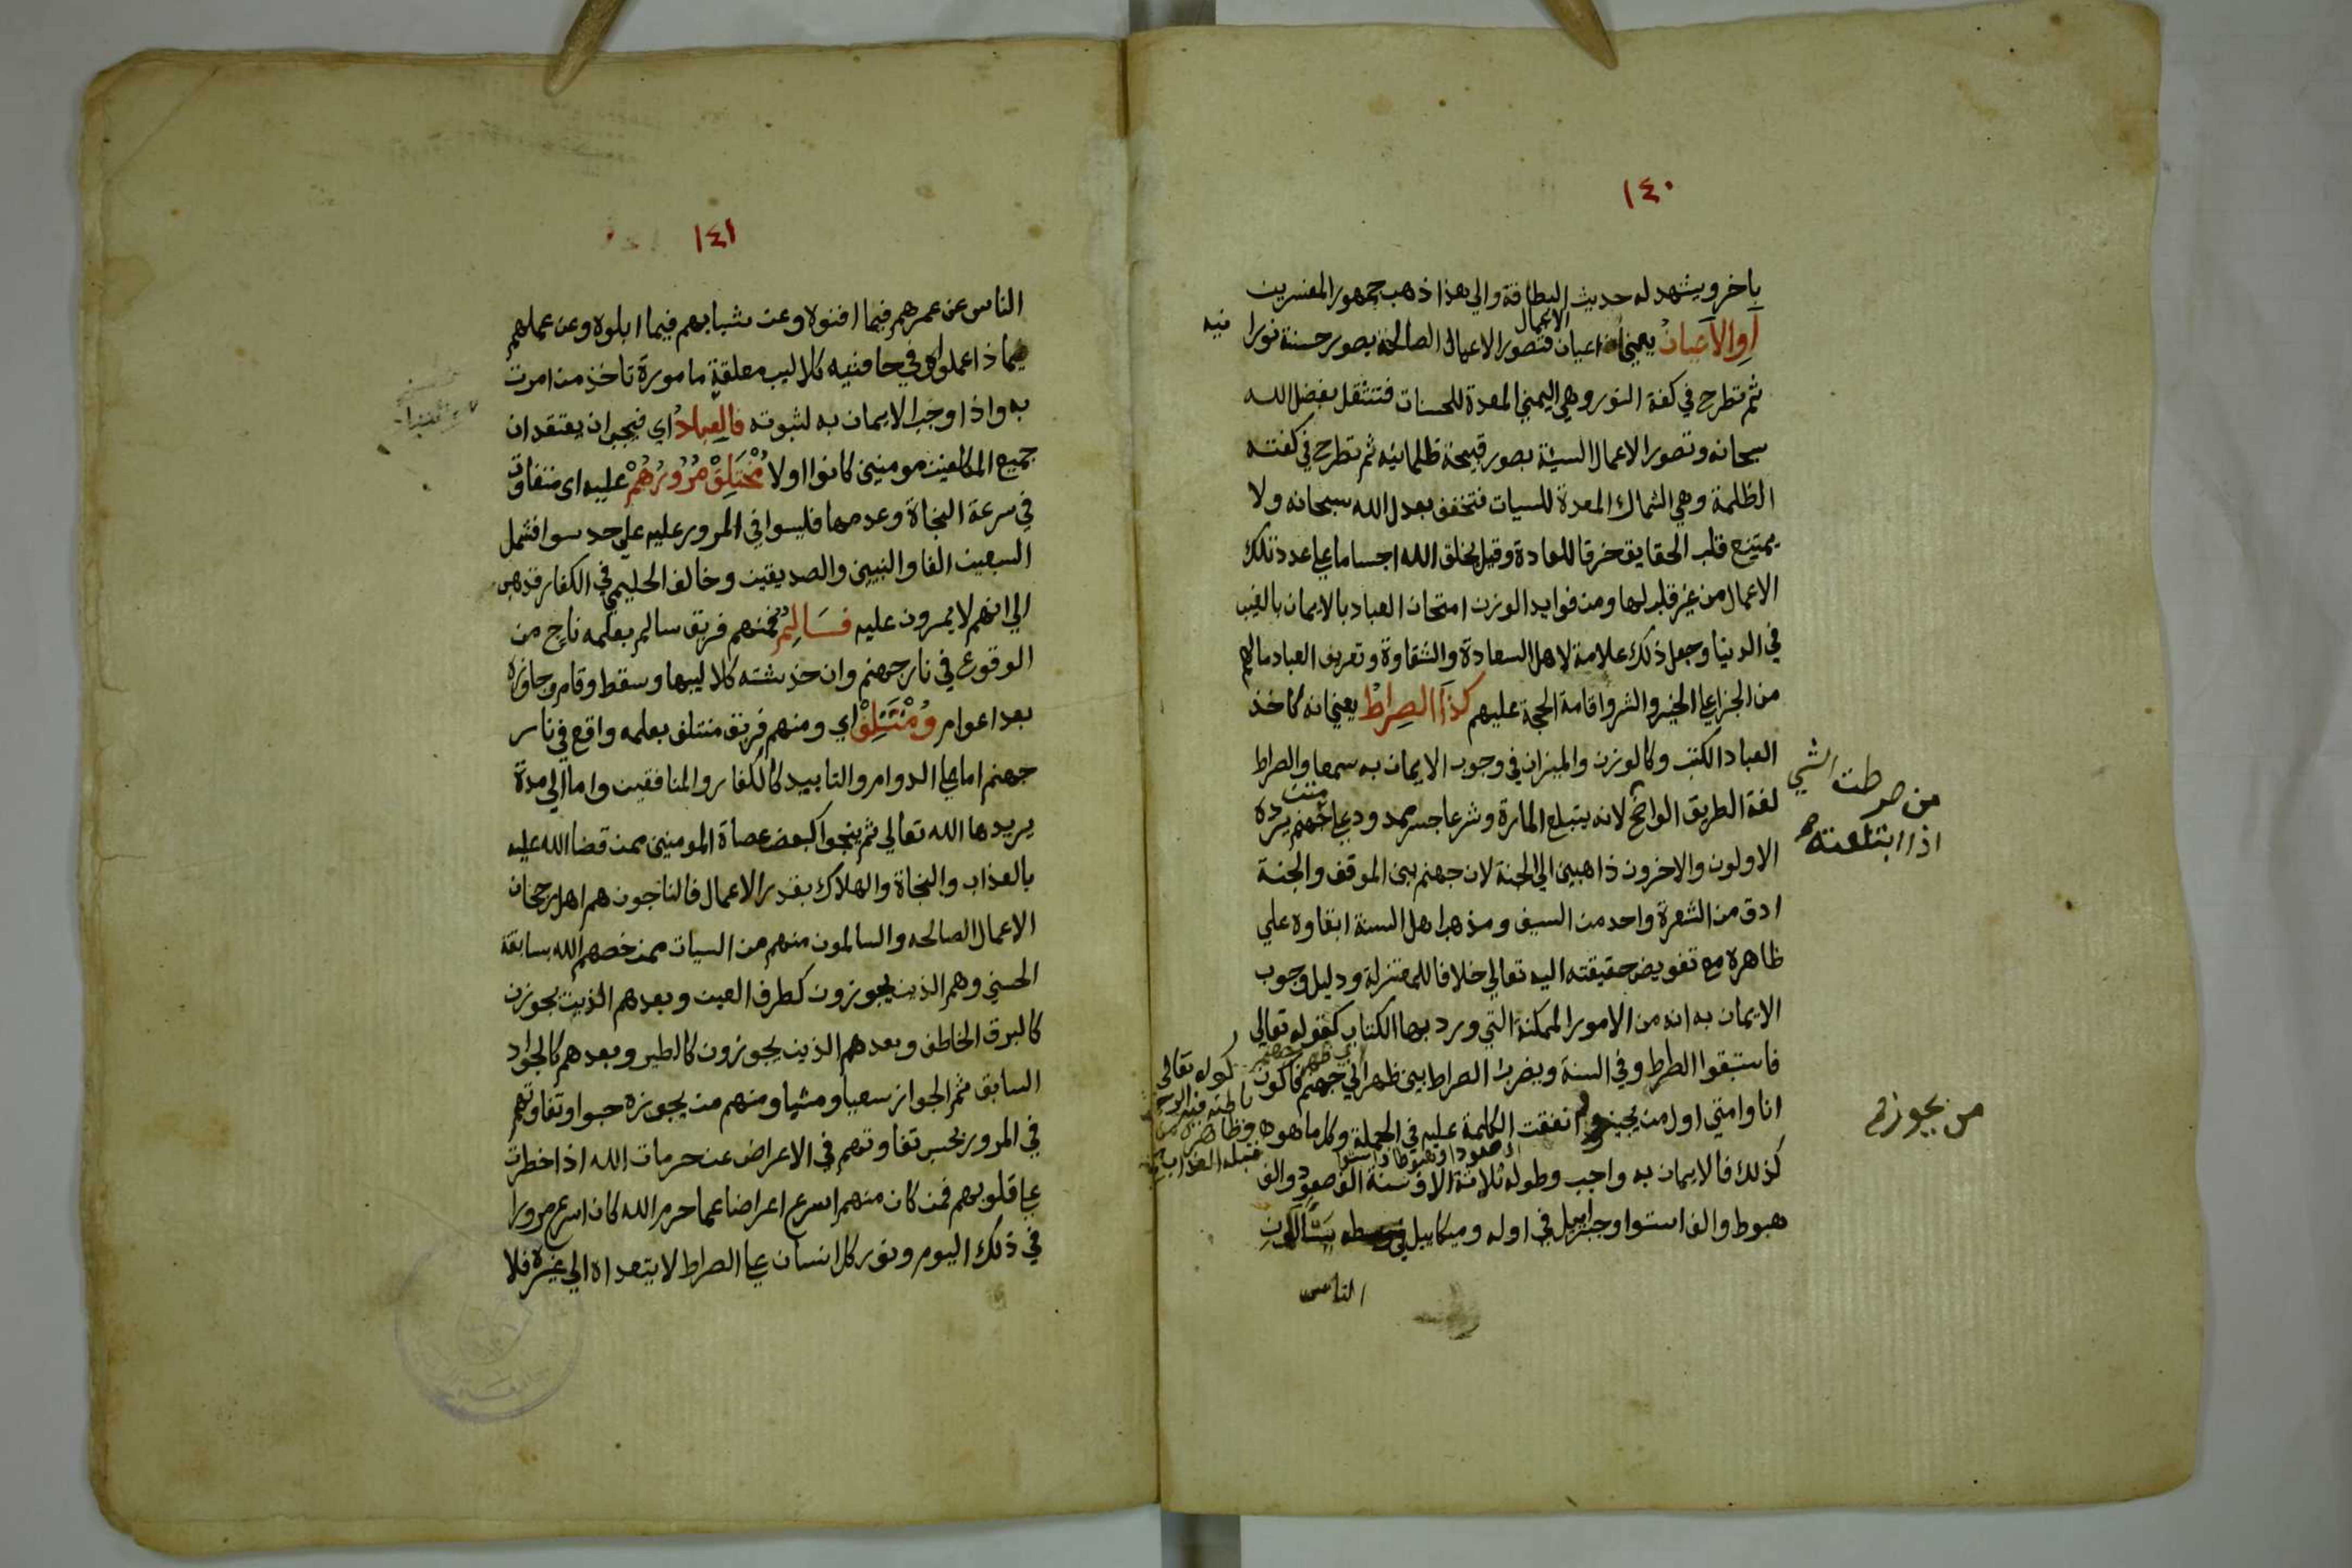 ١٤٠
باخر ويشهد له حديث البطاقة والي هذا ذهب جمهور المفسرين
أو الأعيان يعني ان اعيان الاعمال فتصور الاعمال الصالحة بصور حسنة نورا نيه
ثم تطرح في كفة النور وهي اليمني المعدة للحسنات فتثقل بفضل الله
سبحانه وتصور الاعمال السيئة بصور قبيحة ظلمانيه ثم تطرح في كفته
الظلمة وهي الشمال المعدة للسيات فتخفف بعدل الله سبحانه ولا
يمتنع قلب الحقايق خرقا للعادة وقيل يخلق الله اجساما علي عدد تلك
الاعمال من غير قلب لها ومن فوايد الوزن امتحان العباد بالايمان بالغيب
في الدنيا وجعل ذلك علامة لاهل السعادة والشقاوة وتعريف العباد مالهم
من الجزا علي الخير والشر واقامة الحجة عليهم كذا الصراط يعني انه كاخذ
العباد الكتب وكالوزن والميزان في وجوب الايمان به سمعا والصراط
لغة الطريق الواضح لانه يبتلع المارة وشرعا جسر ممدود علي متن جهنم يرده
الاولون والاخرون ذاهبين الي الجنة لان جهنم بين الموقف والجنة
ادق من الشعرة واحد من السيف ومذهب اهل السنة ابقاوه علي
ظاهره مع تفويض حقيقته اليه تعالي خلافا للمعتزلة ودليل وجوب
الايمان به انه من الامور الممكنة التي ورد بها الكتاب كقوله تعالي
فاستبقوا الصراط وفي السنة ويضرب الصراط بين ظهراني جهنم فاكون
انا وامتي اول من يجيز و اتفقت الكلمة عليه في الجملة وكل ما هو
كذلك فالايمان به واجب وطوله ثلاثة الاف سنة الف صعود والف
هبوط والف استوا وجبريل في اوله وميكاييل في وسطه يسالون
الناس
من صرطت الشي
اذا ابتلعته
من يجوزه
كقوله تعالى
باطنه فيه الرحمة
وظاهره من
قبله العذاب
١٤١
الناس عن عمرهم فيما افنوه وعن شبابهم فيما ابلوه وعن عملهم
بماذا عملوا وفي حافتيه كلاليب معلقة مامورة تاخذ من امرت
به واذا وجب الايمان به لثبوته فالعباد اي فيجب ان يعتقد ان
جميع المكلفين مومنين كانوا اولا مختلف مرورهم عليه اي متفاوت
في سرعة النجاة وعدمها فليسوا في المرور عليه علي حد سوا فشمل
السبعين الفا والنبيين والصديقين وخالف الحليمي في الكفار فذهب
الي انهم لا يمرون عليه فسالم فمنهم فريق سالم بعلمه ناج من
الوقوع في نار جهنم وان خدشته كلاليبها وسقط وقام وجاوزه
بعد اعوام ومنتلف اي ومنهم فريق منتلف بعلمه واقع في نار
جهنم اما علي الدوام والتابيد كالكفار والمنافقين واما الي مدة
يريدها الله تعالي ثم ينجوا كبعض عصاة المومنين ممن قضا الله عليه
بالعذاب والنجاة والهلاك بقدر الاعمال فالناجون هم اهل رجحان
الاعمال الصالحه والسالمون منهم من السيات ممن خصهم الله بسابقة
الحسني وهم الذين يجوزون كطرف العين وبعدهم الذين يجوزن
كالبرق الخاطف وبعدهم الذين يجوزون كالطير وبعدهم كالجواد
السابق ثم الجواز سعيا ومشيا ومنهم من يجوزه حبوا وتفاوتهم
في المرور بحسب تفاوتهم في الاعراض عن حرمات الله اذا خطرت
علي قلوبهم فمن كان منهم اسرع اعراضا عما حرم الله كان اسرع مرورا
في ذلك اليوم ونور كل انسان علي الصراط لا يتعداه الي غيره فلا